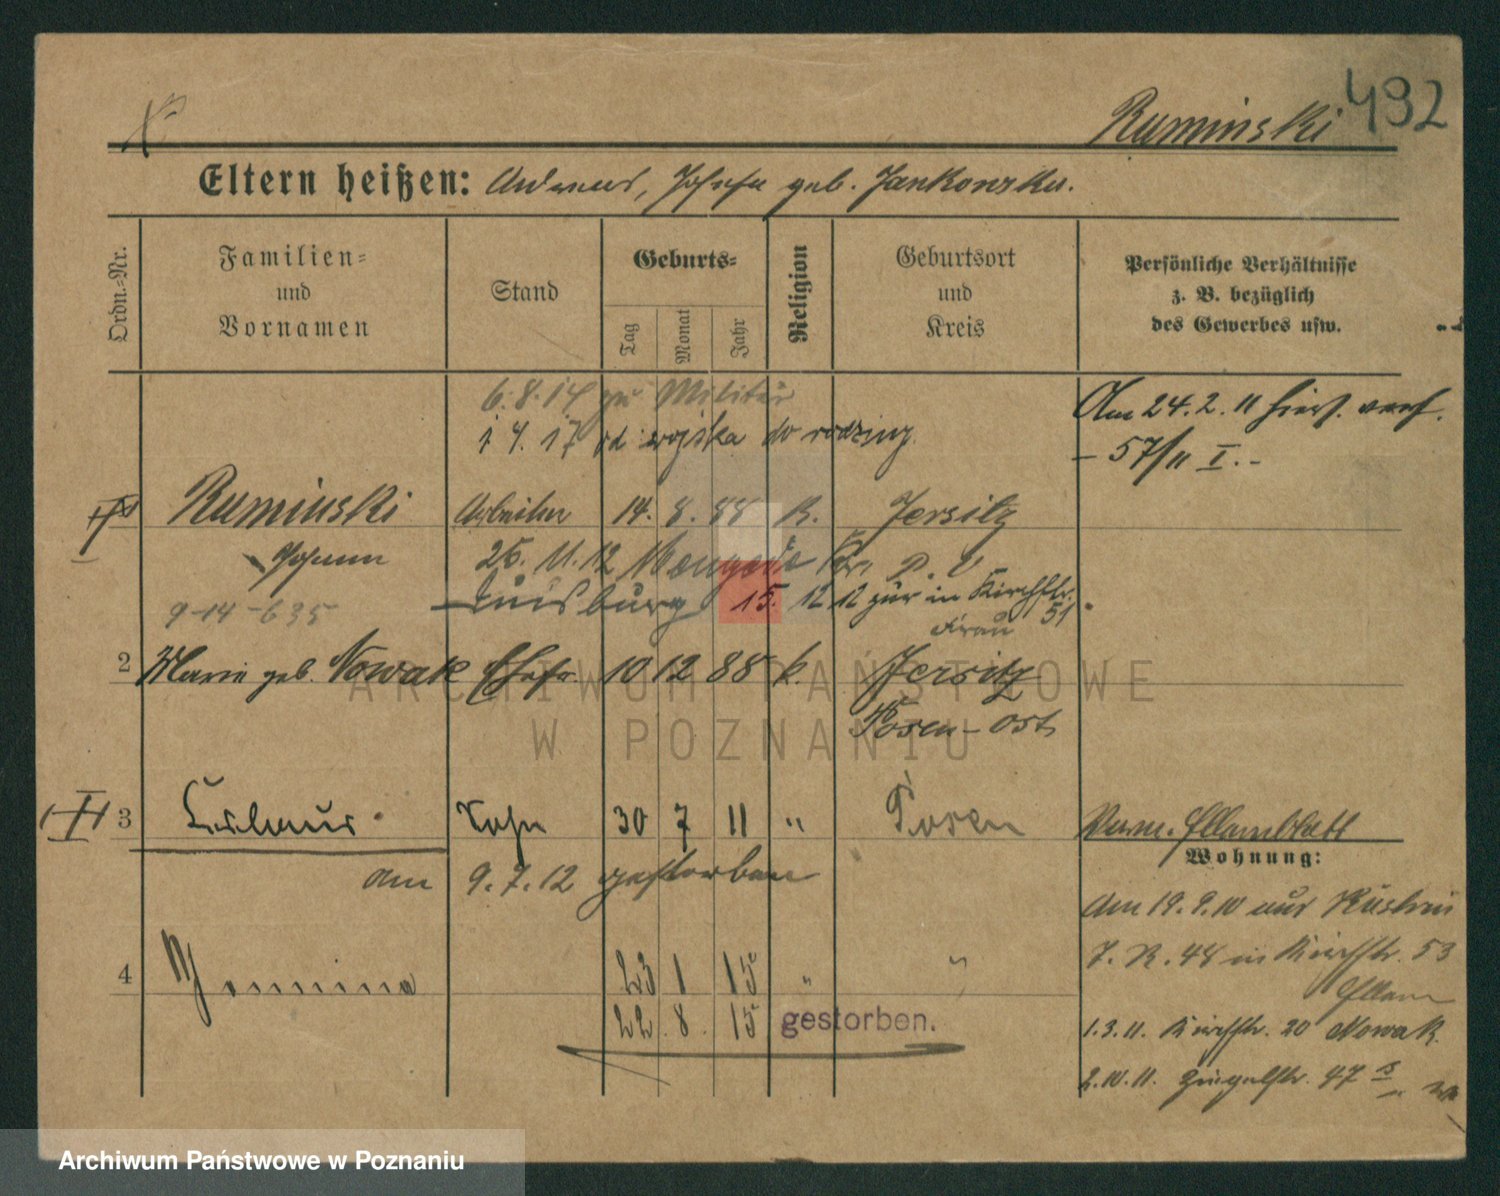 492
Ruminski
Eltern heißen: Andreas, Josefa geb. Jankowska.
Ordn.=Nr.
Familien= und Vornamen
Stand
Geburts=
Tag
Monat
Jahr
Religion
Geburtsort und Kreis
Persönliche Verhältnisse z. B. bezüglich des Gewerbes usw.
6.8.14 zu Militär
1 4. 17 od wojska do rodziny
Am 24.2.11 hier verh.
– 57/11 I. –
Ruminski Arbeiter 14. 8. 88 K. Jersitz
Johann 26. 11. 12
9-14-635
Duisburg 15. 12 12 zur in Kirchstr. 51
Frau
2 Marie geb. Nowak Ehefr. 10 12 88 k. Jersitz
Posen-Ost
3 Sohn 30 7 11 " Posen
am 9.7.12 gestorben
Wohnung:
Am 19.9.10 aus
in Kirchstr. 53
Eltern
4 23 1 15 " "
22 8. 15 gestorben.
1.3.11. Kirchstr. 20 Nowak.
2.10.11. 47
ARCHIWUM PAŃSTWOWE
W POZNANIU
Archiwum Państwowe w Poznaniu